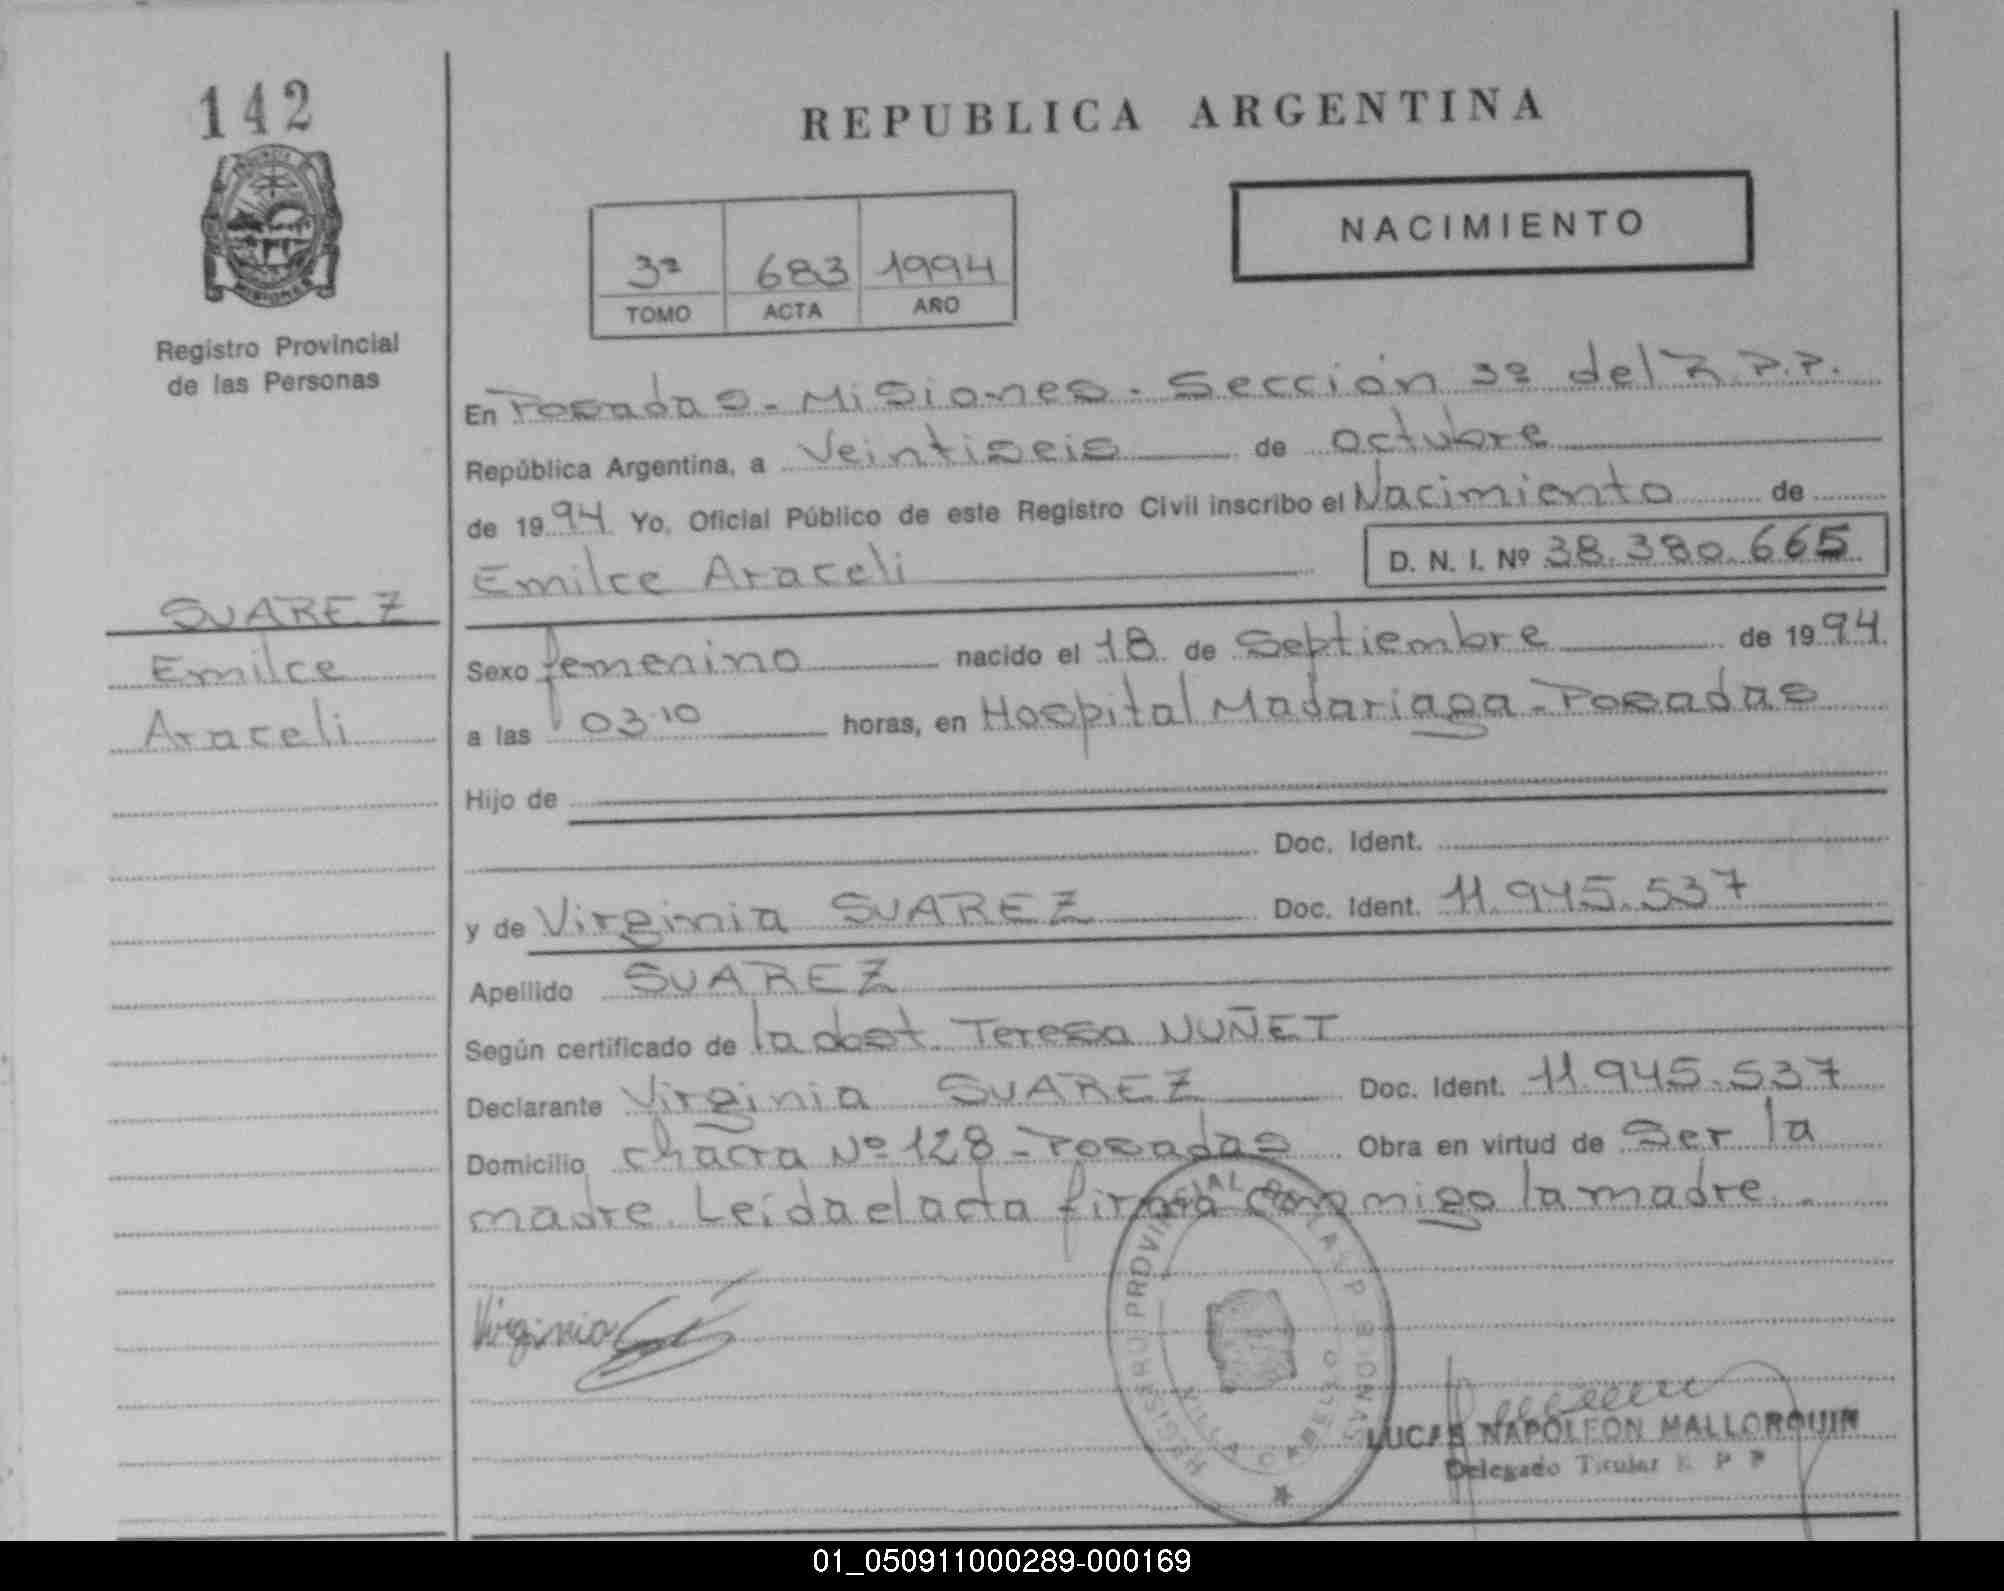 142
REPUBLICA ARGENTINA
NACIMIENTO
3ª 683 1994
TOMO ACTA AÑO
MISIONES
Registro Provincial
de las Personas
En Posadas - Misiones - Sección 3ª del R.P.P.
República Argentina, a Veintiseis de octubre
de 1994 Yo, Oficial Público de este Registro Civil inscribo el Nacimiento de
Emilce Araceli D. N. I. Nº 38.380.665
SUAREZ
Emilce
Araceli
Sexo femenino nacido el 18 de Septiembre de 1994.
a las 03.10 horas, en Hospital Madariaga - Posadas
Hijo de
Doc. Ident.
y de Virginia SUAREZ Doc. Ident. 11.945.537
Apellido SUAREZ
Según certificado de la obst. Teresa NUÑET
Declarante Virginia SUAREZ Doc. Ident. 11.945.537
Domicilio chacra Nº 128 - Posadas Obra en virtud de Ser la
madre. Leida el acta firma conmigo la madre. -
Virginia
REGISTRO PROVINCIAL DE LAS PERSONAS
VILLA CABELLO
LUCAS NAPOLEON MALLORQUIN
Delegado Titular R P P
01_050911000289-000169